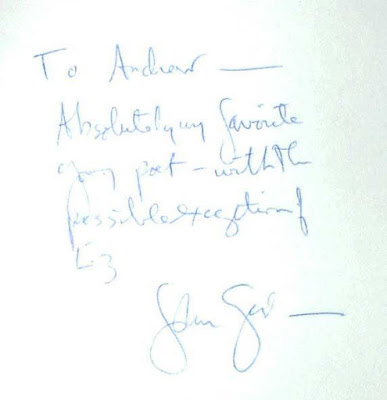 To Andrew —
Absolutely my favorite
young poet – with the
possible exception of
Liz
John